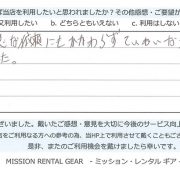 ば当店を利用したいと思われましたか？その他感想・ご要望が
又利用したい　b. どちらともいえない　c. 利用はしない
急な依頼にもかかわらずていねいな
た。
ざいました。戴いたご感想・意見を大切に今後のサービス向上
当店をご利用になる方への参考の為、当HP上で使させて戴くこともござ
是非、またのご利用機会を戴けましたら幸いです。
MISSION RENTAL GEAR - ミッション・レンタル ギア -